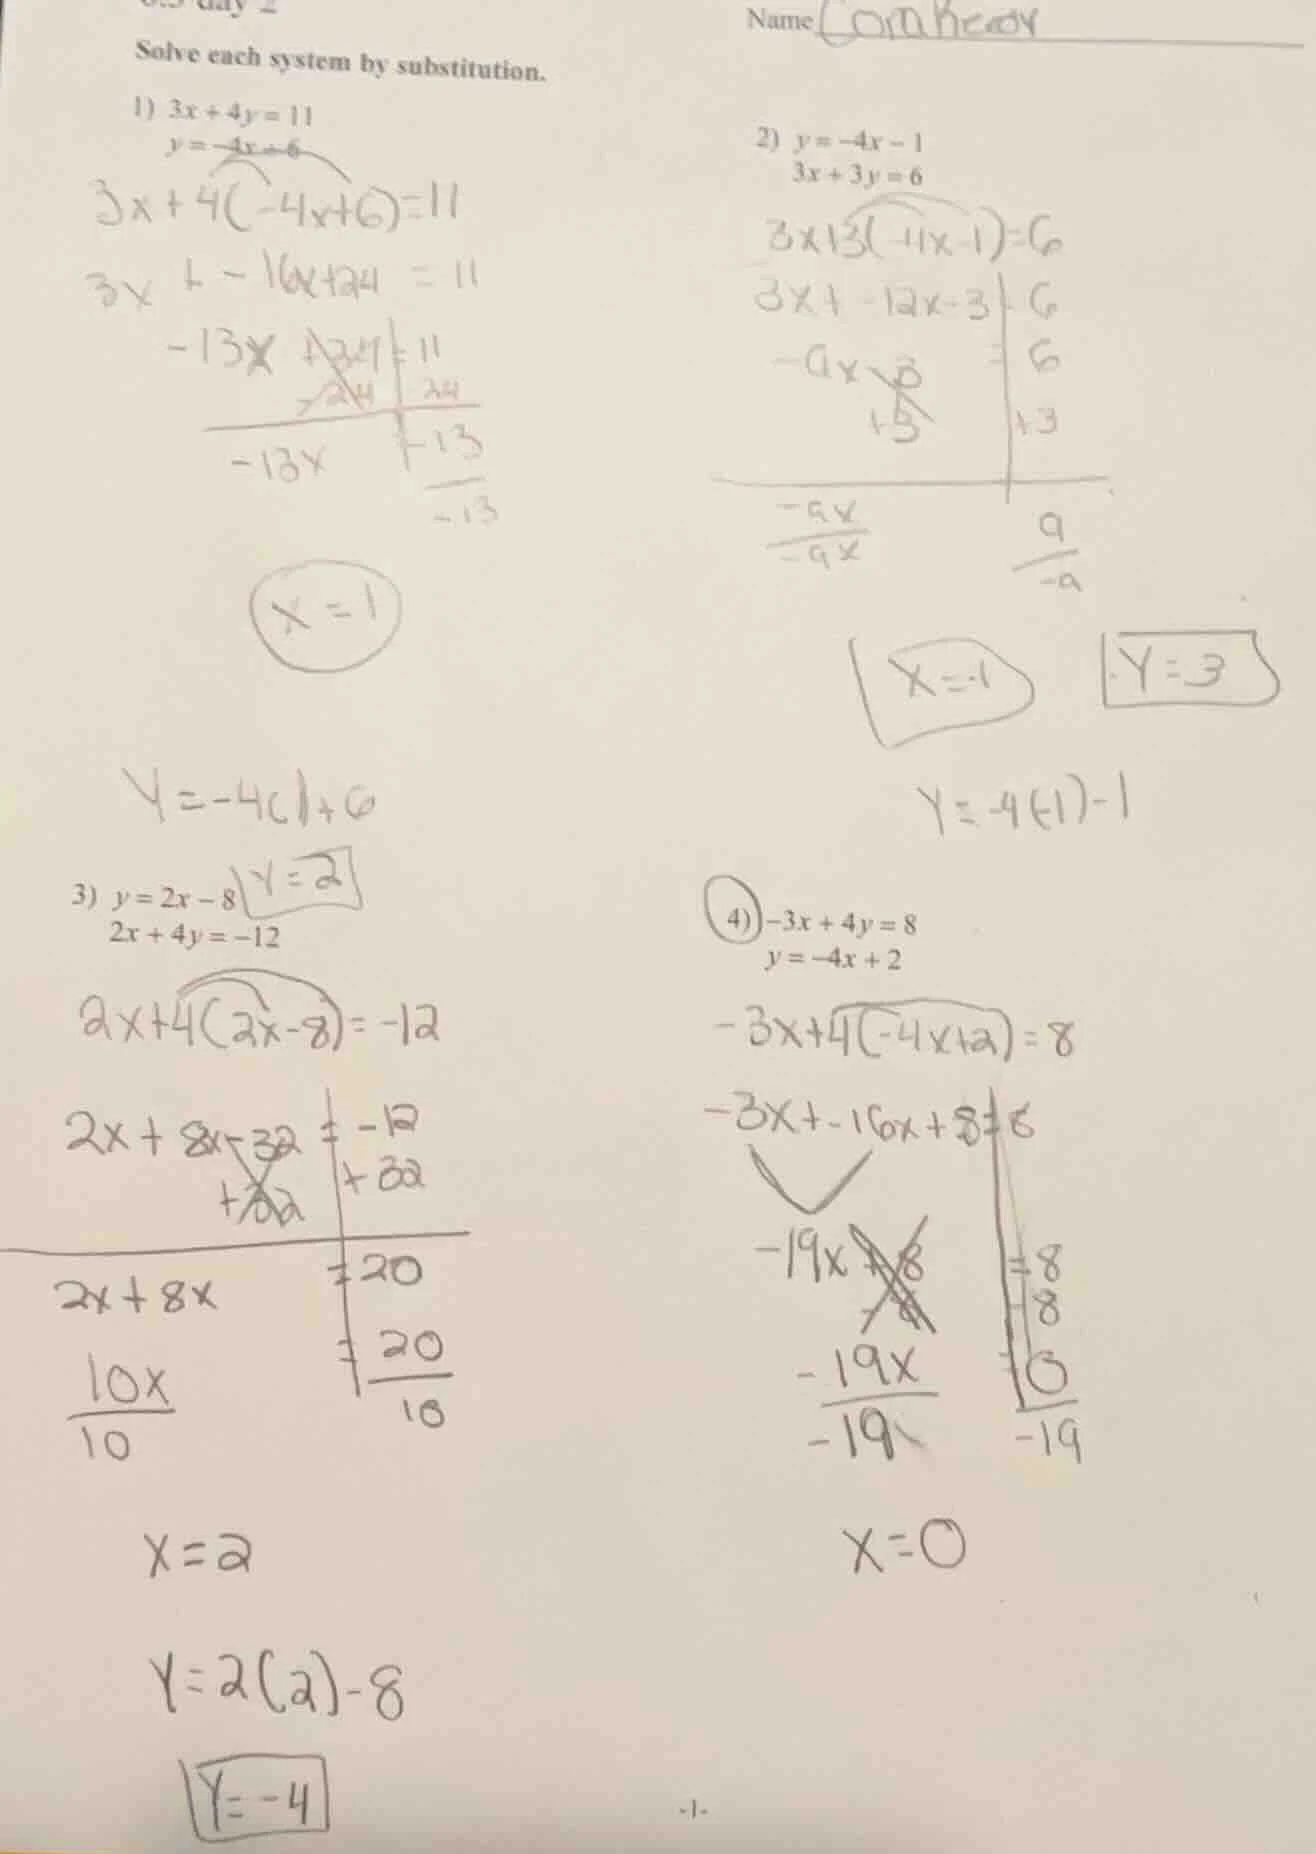 day 2
Name Cornhead
Solve each system by substitution.
1) 3x + 4y = 11
y = -4x + 6
3x + 4(-4x+6)=11
3x + - 16x+24 = 11
-13x +24 = 11
-24 24
-13x = -13
-13
x = 1
Y = -4( )+6
Y = 2
2) y = -4x - 1
3x + 3y = 6
3x+3(-4x-1)=6
3x + -12x-3 = 6
-9x -3 = 6
+3 +3
-9x 9
-9x -9
X = -1
Y = 3
Y = -4(-1)-1
3) y = 2x - 8
2x + 4y = -12
2x+4(2x-8)= -12
2x + 8x-32 = -12
+32 +32
2x + 8x = 20
10x = 20
10 10
X = 2
Y = 2(2)-8
Y = -4
4) -3x + 4y = 8
y = -4x + 2
-3x+4(-4x+2) = 8
-3x+-16x+8=8
-19x + 8 = 8
-8 -8
-19x = 0
-19 -19
X=0
-1-